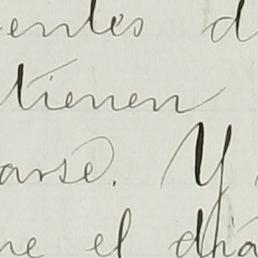 entes d
tienen
arse. Y
ue el día